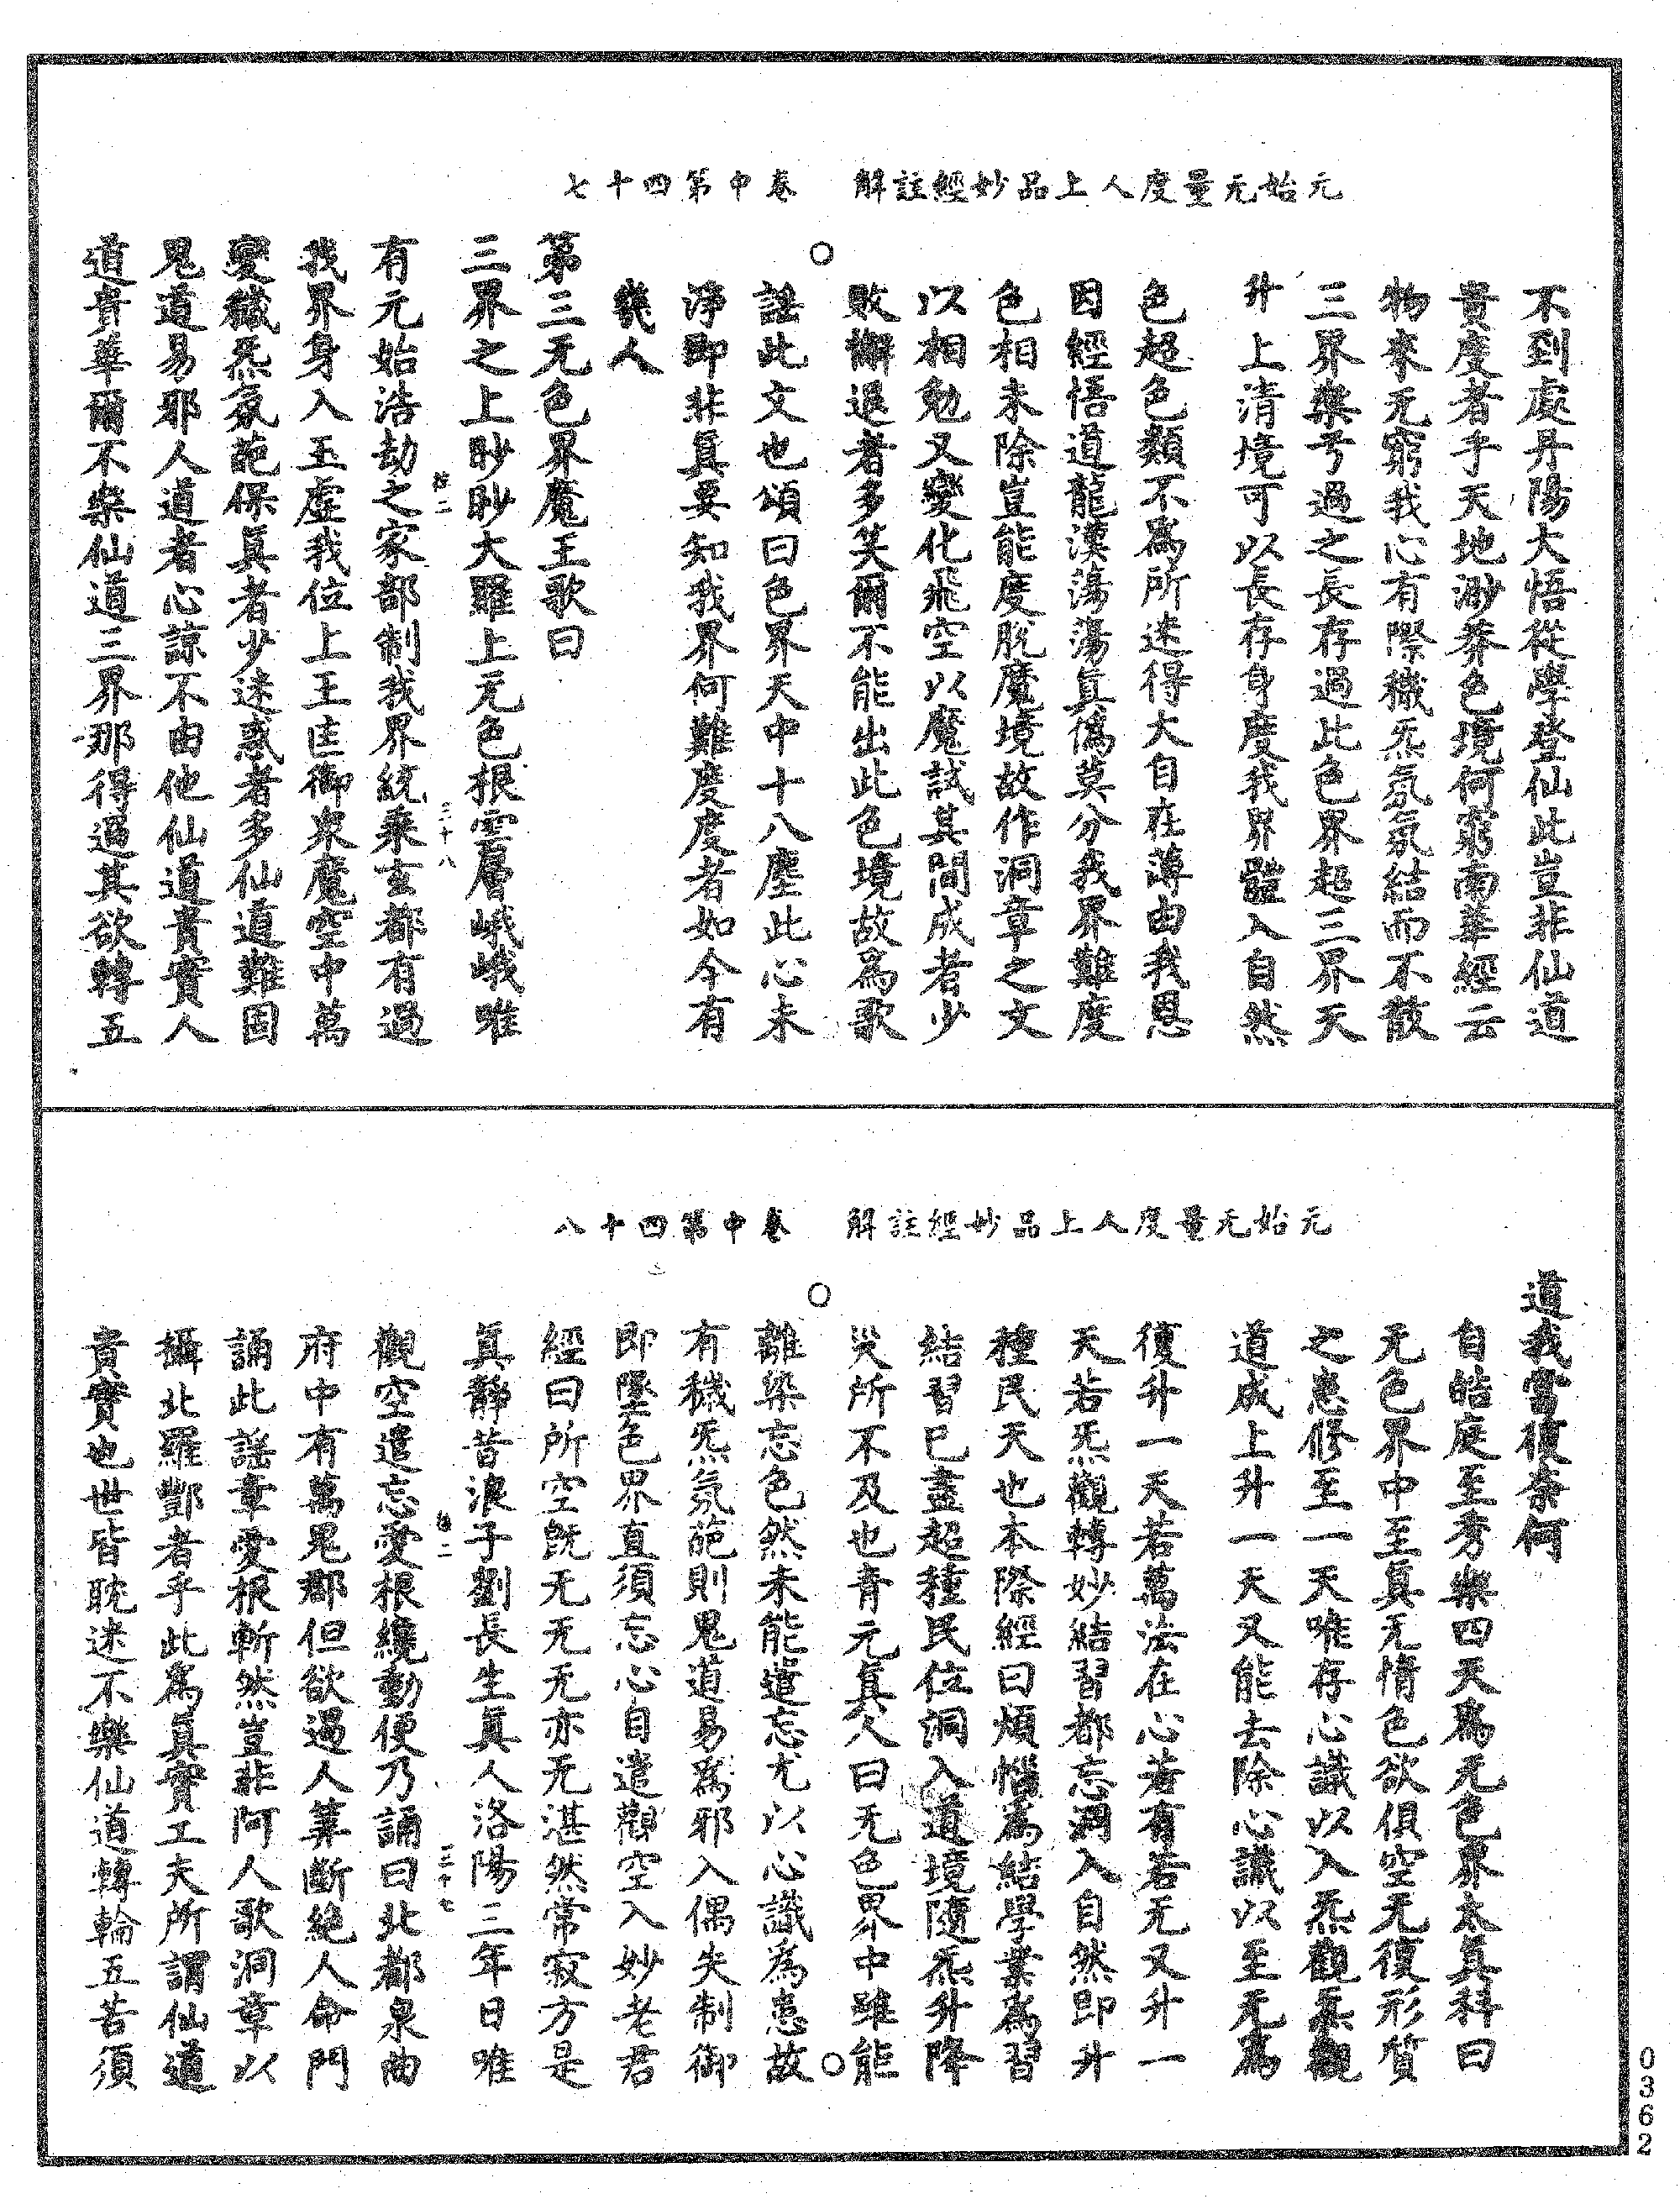 元始无量度人上品妙經註解　卷中第四十七
不到處丹陽大悟從學登仙此豈非仙道
貴度者乎天地渺莽色境何窮南華經云
物來无窮我心有際穢炁氛氛結而不散
三界樂兮過之長存過此色界超三界天
升上清境可以長存身度我界體入自然
色超色類不為所迷得大自在薄由我恩
因經悟道龍漢蕩蕩真偽莫分我界難度
色相未除豈能度脫魔境故作洞章之文
以相勉又變化飛空以魔試其間成者少
敗懈退者多笑爾不能出此色境故為歌
謠此文也頌曰色界天中十八塵此心未
淨即非真要知我界何難度度者如今有
幾人
第三无色界魔王歌曰
三界之上眇眇大羅上无色根雲層峨峨唯
有元始浩劫之家部制我界統乘玄都有過
我界身入玉虛我位上王匡御眾魔空中萬
變穢炁氛葩保真者少迷惑者多仙道難固
鬼道易邪人道者心諒不由他仙道貴實人
道貴華爾不樂仙道三界那得過其欲轉五
二
三十八
元始无量度人上品妙經註解　卷中第四十八
道我當復奈何
自皓庭至秀樂四天為无色界太真科曰
无色界中至真无情色欲俱空无復形質
之患修至一天唯存心識以入炁觀炁觀
道成上升一天又能去除心識以至无為
復升一天若萬法在心若有若无又升一
天若炁觀轉妙結習都忘洞入自然即升
種民天也本際經曰煩惱為結學業為習
結習已盡超種民位洞入道境隨炁升降
災所不及也青元真人曰无色界中雖能
離染忘色然未能遣忘尤以心識為患故
有穢炁氛葩則鬼道易為邪入偶失制御
即墜色界直須忘心自遣觀空入妙老君
經曰所空既无无无亦无湛然常寂方是
真靜昔浪子劉長生真人洛陽三年日唯
觀空遣忘愛根纔動便乃誦曰北都泉曲
府中有萬鬼郡但欲遏人筭斷絕人命門
誦此謠章愛根斬然豈非阿人歌洞章以
攝北羅酆者乎此為真實工夫所謂仙道
貴實也世皆眈迷不樂仙道轉輪五苦須
二
三十七
0362